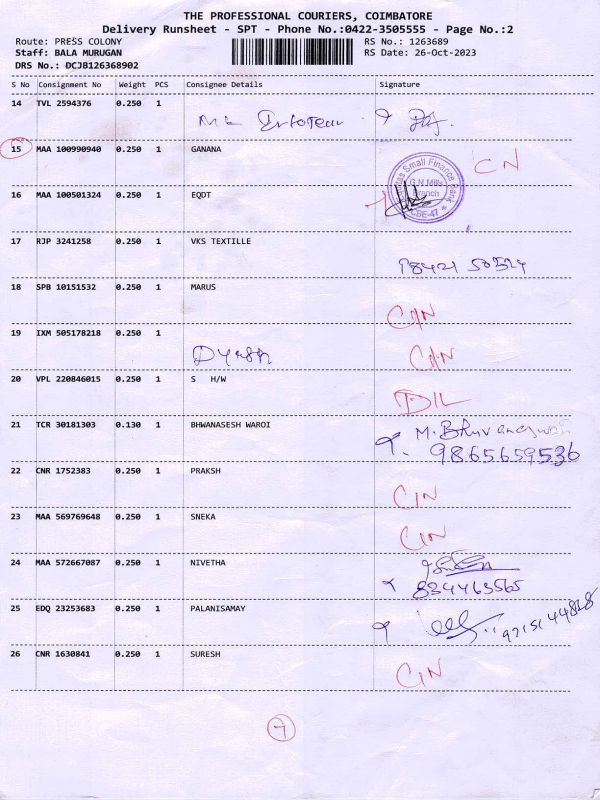 THE PROFESSIONAL COURIERS, COIMBATORE
Delivery Runsheet - SPT - Phone No.:0422-3505555 - Page No.:2
Route: PRESS COLONY RS No.: 1263689
Staff: BALA MURUGAN RS Date: 26-Oct-2023
DRS No.: DCJB126368902
S No Consignment No Weight PCS Consignee Details Signature
14 TVL 2594376 0.250 1
15 MAA 100990940 0.250 1 GANANA CN
Small Finance Bank
G.N.Mills
Branch
CBE-47
16 MAA 100501324 0.250 1 EQDT
17 RJP 3241258 0.250 1 VKS TEXTILLE
18 SPB 10151532 0.250 1 MARUS CIN
19 IXM 505178218 0.250 1 CIN
20 VPL 220846015 0.250 1 S H/W DIL
21 TCR 30181303 0.130 1 BHWANASESH WAROI M. Bhuvaneswari
9865659536
22 CNR 1752383 0.250 1 PRAKSH CIN
23 MAA 569769648 0.250 1 SNEKA CIN
24 MAA 572667087 0.250 1 NIVETHA
25 EDQ 23253683 0.250 1 PALANISAMAY
26 CNR 1630841 0.250 1 SURESH CIN
7